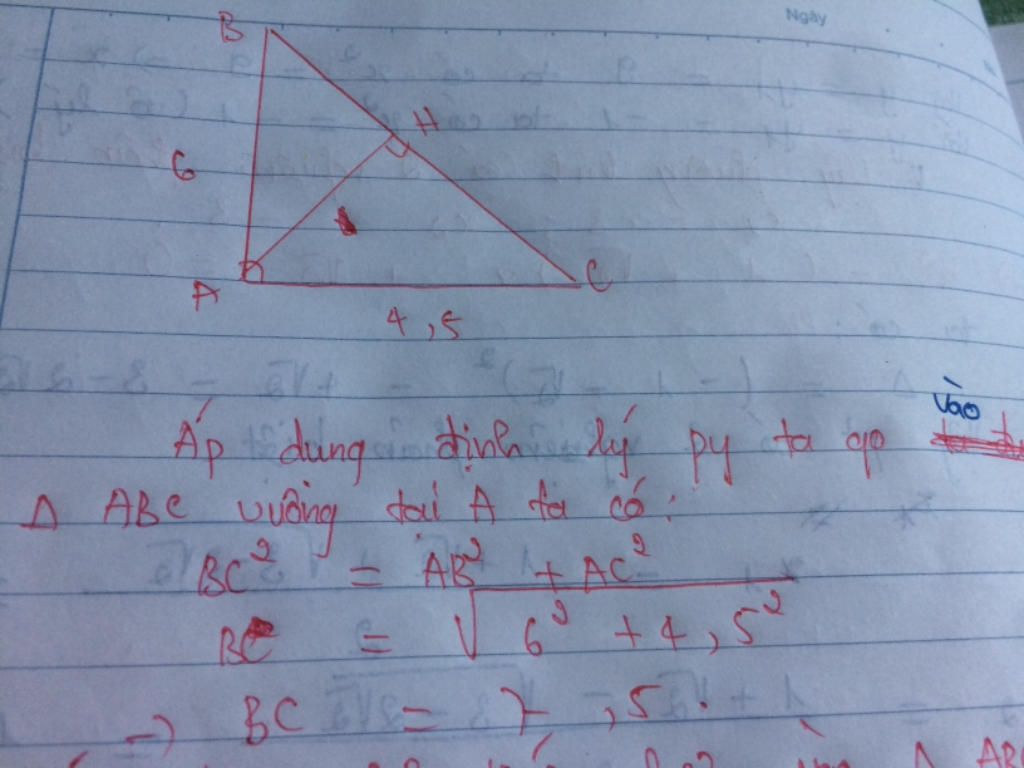 Ngày
B
H
6
A
C
4,5
Áp dung định lý py ta go vào
Δ ABC vuông tại A ta có:
BC² = AB² + AC²
BC = √6² + 4,5²
=) BC = 7,5.